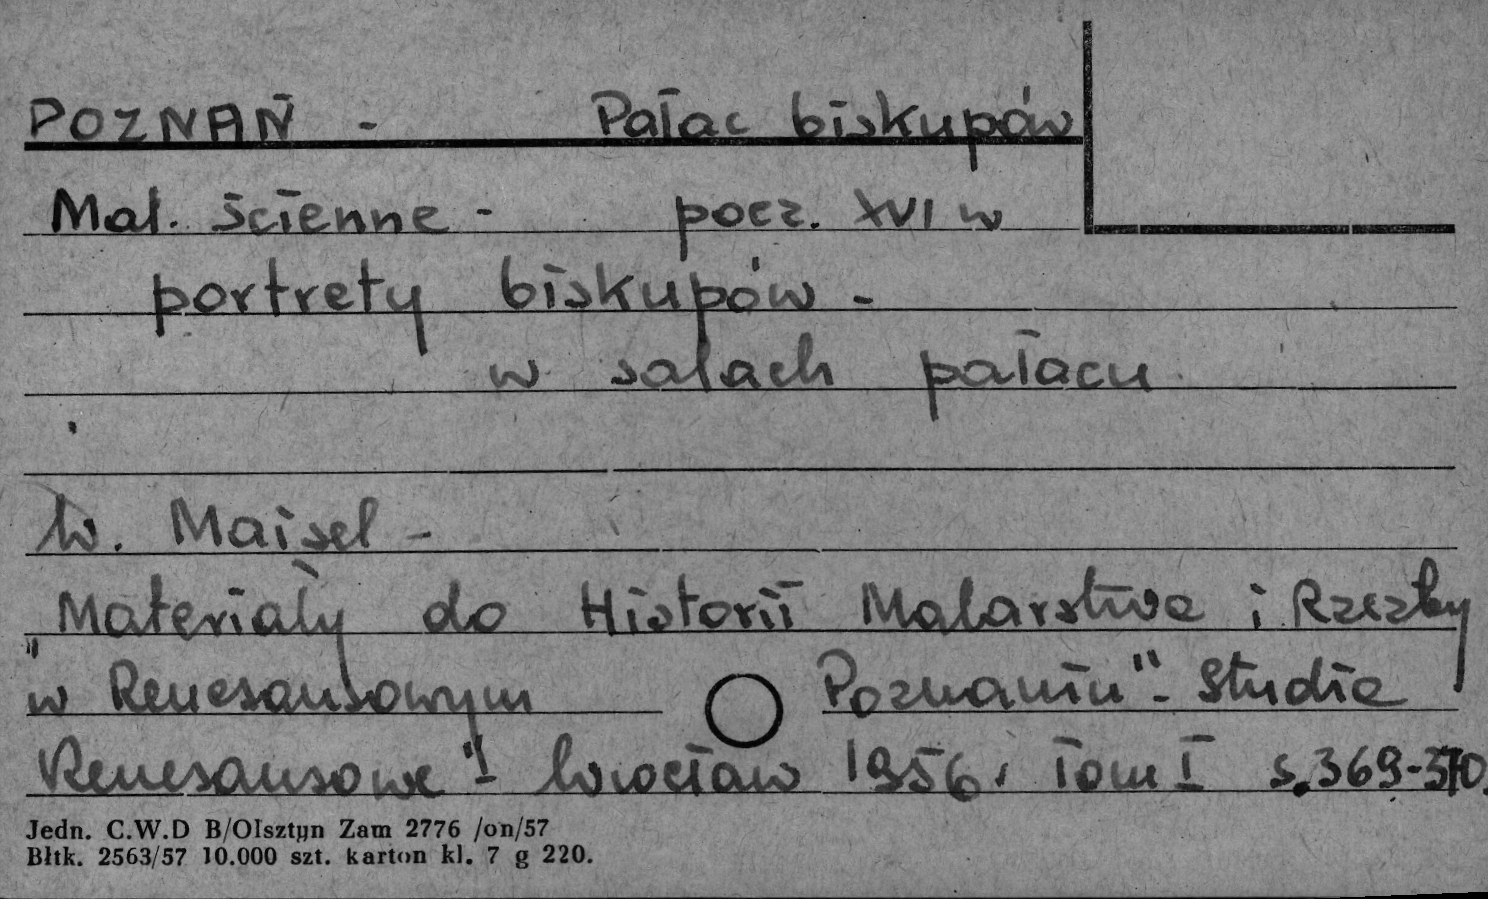 POZNAŃ - Pałac biskupów
Mal. ścienne - pocz. XVI w
portrety biskupów -
w salach pałacu
W. Maisel -
"Materiały do Historii Malarstwa i Rzeźby
w Renesansowym Poznaniu" - Studia
Renesansowe" I Wrocław 1956. Tom I s. 369-370.
Jedn. C.W.D B/Olsztyn Zam 2776 /on/57
Bltk. 2563/57 10.000 szt. karton kl. 7 g 220.